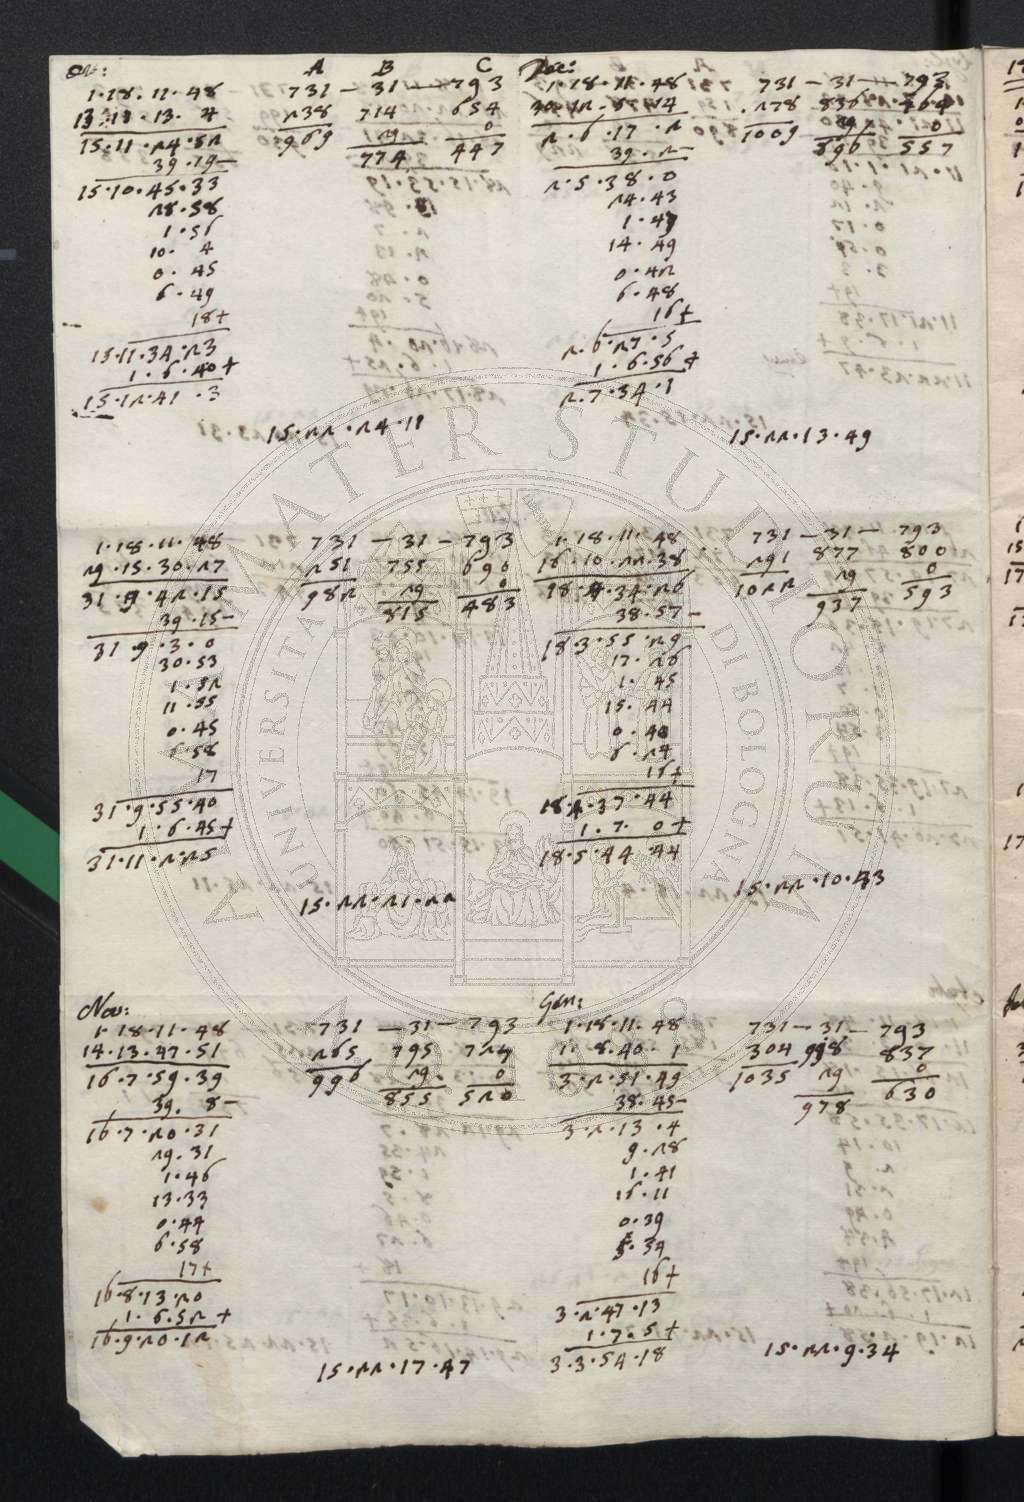 Ott:
A B C
1.18.11.48 731 — 31 — 793
13.13. 4 238 714 654
15.11.24.52 969 29 0
39.19— 774 447
15.10.45.33
28.58
1.56
10. 4
0.45
6.49
18+
15.11.34.23
1.6.40+
15.12.41.3
15.22.24.11
1.18.11.48 731 — 31 — 793
29.15.30.27 251 755 690
31.9.42.15 982 29 0
39.15— 815 483
31.9.3.0
30.53
1.52
11.55
0.45
6.58
17
31.9.55.40
1.6.45+
31.11.2.25
15.22.21.22
Nov:
1.18.11.48 731 — 31 — 793
14.13.47.51 265 795
16.7.59.39 996 29. 0
39. 8— 855 520
16.7.20.31
29.31
1.46
13.33
0.44
6.58
17+
16.8.13.20
1.6.52+
16.9.20.12
15.22.17.47
Dec:
1.18.11.48 731 — 31 — 793
278 836 764
2.6.17.2 1009 29 0
39.2— 896 557
2.5.38.0
24.43
1.49
14.49
0.42
6.48
16+
2.6.27.5
1.6.56+
2.7.34.1
15.22.13.49
1.18.11.48 731 — 31 — 793
16.10.22.38 291 877 800
18.4.34.26 1022 29 0
38.57— 937 593
18.3.55.29
17.26
1.45
15.44
0.40
6.24
16+
18.4.37.44
1.7.0+
18.5.44.44
15.22.10.43
Gen:
1.18.11.48 731 — 31 — 793
1.8.40.1 304 918 837
3.2.51.49 1035 29 0
38.45— 978 630
3.2.13.4
9.28
1.41
16.11
0.39
5.34
16+
3.2.47.13
1.7.5+
3.3.54.18
15.22.9.34
ALMA MATER STUDIORUM
UNIVERSITA DI BOLOGNA